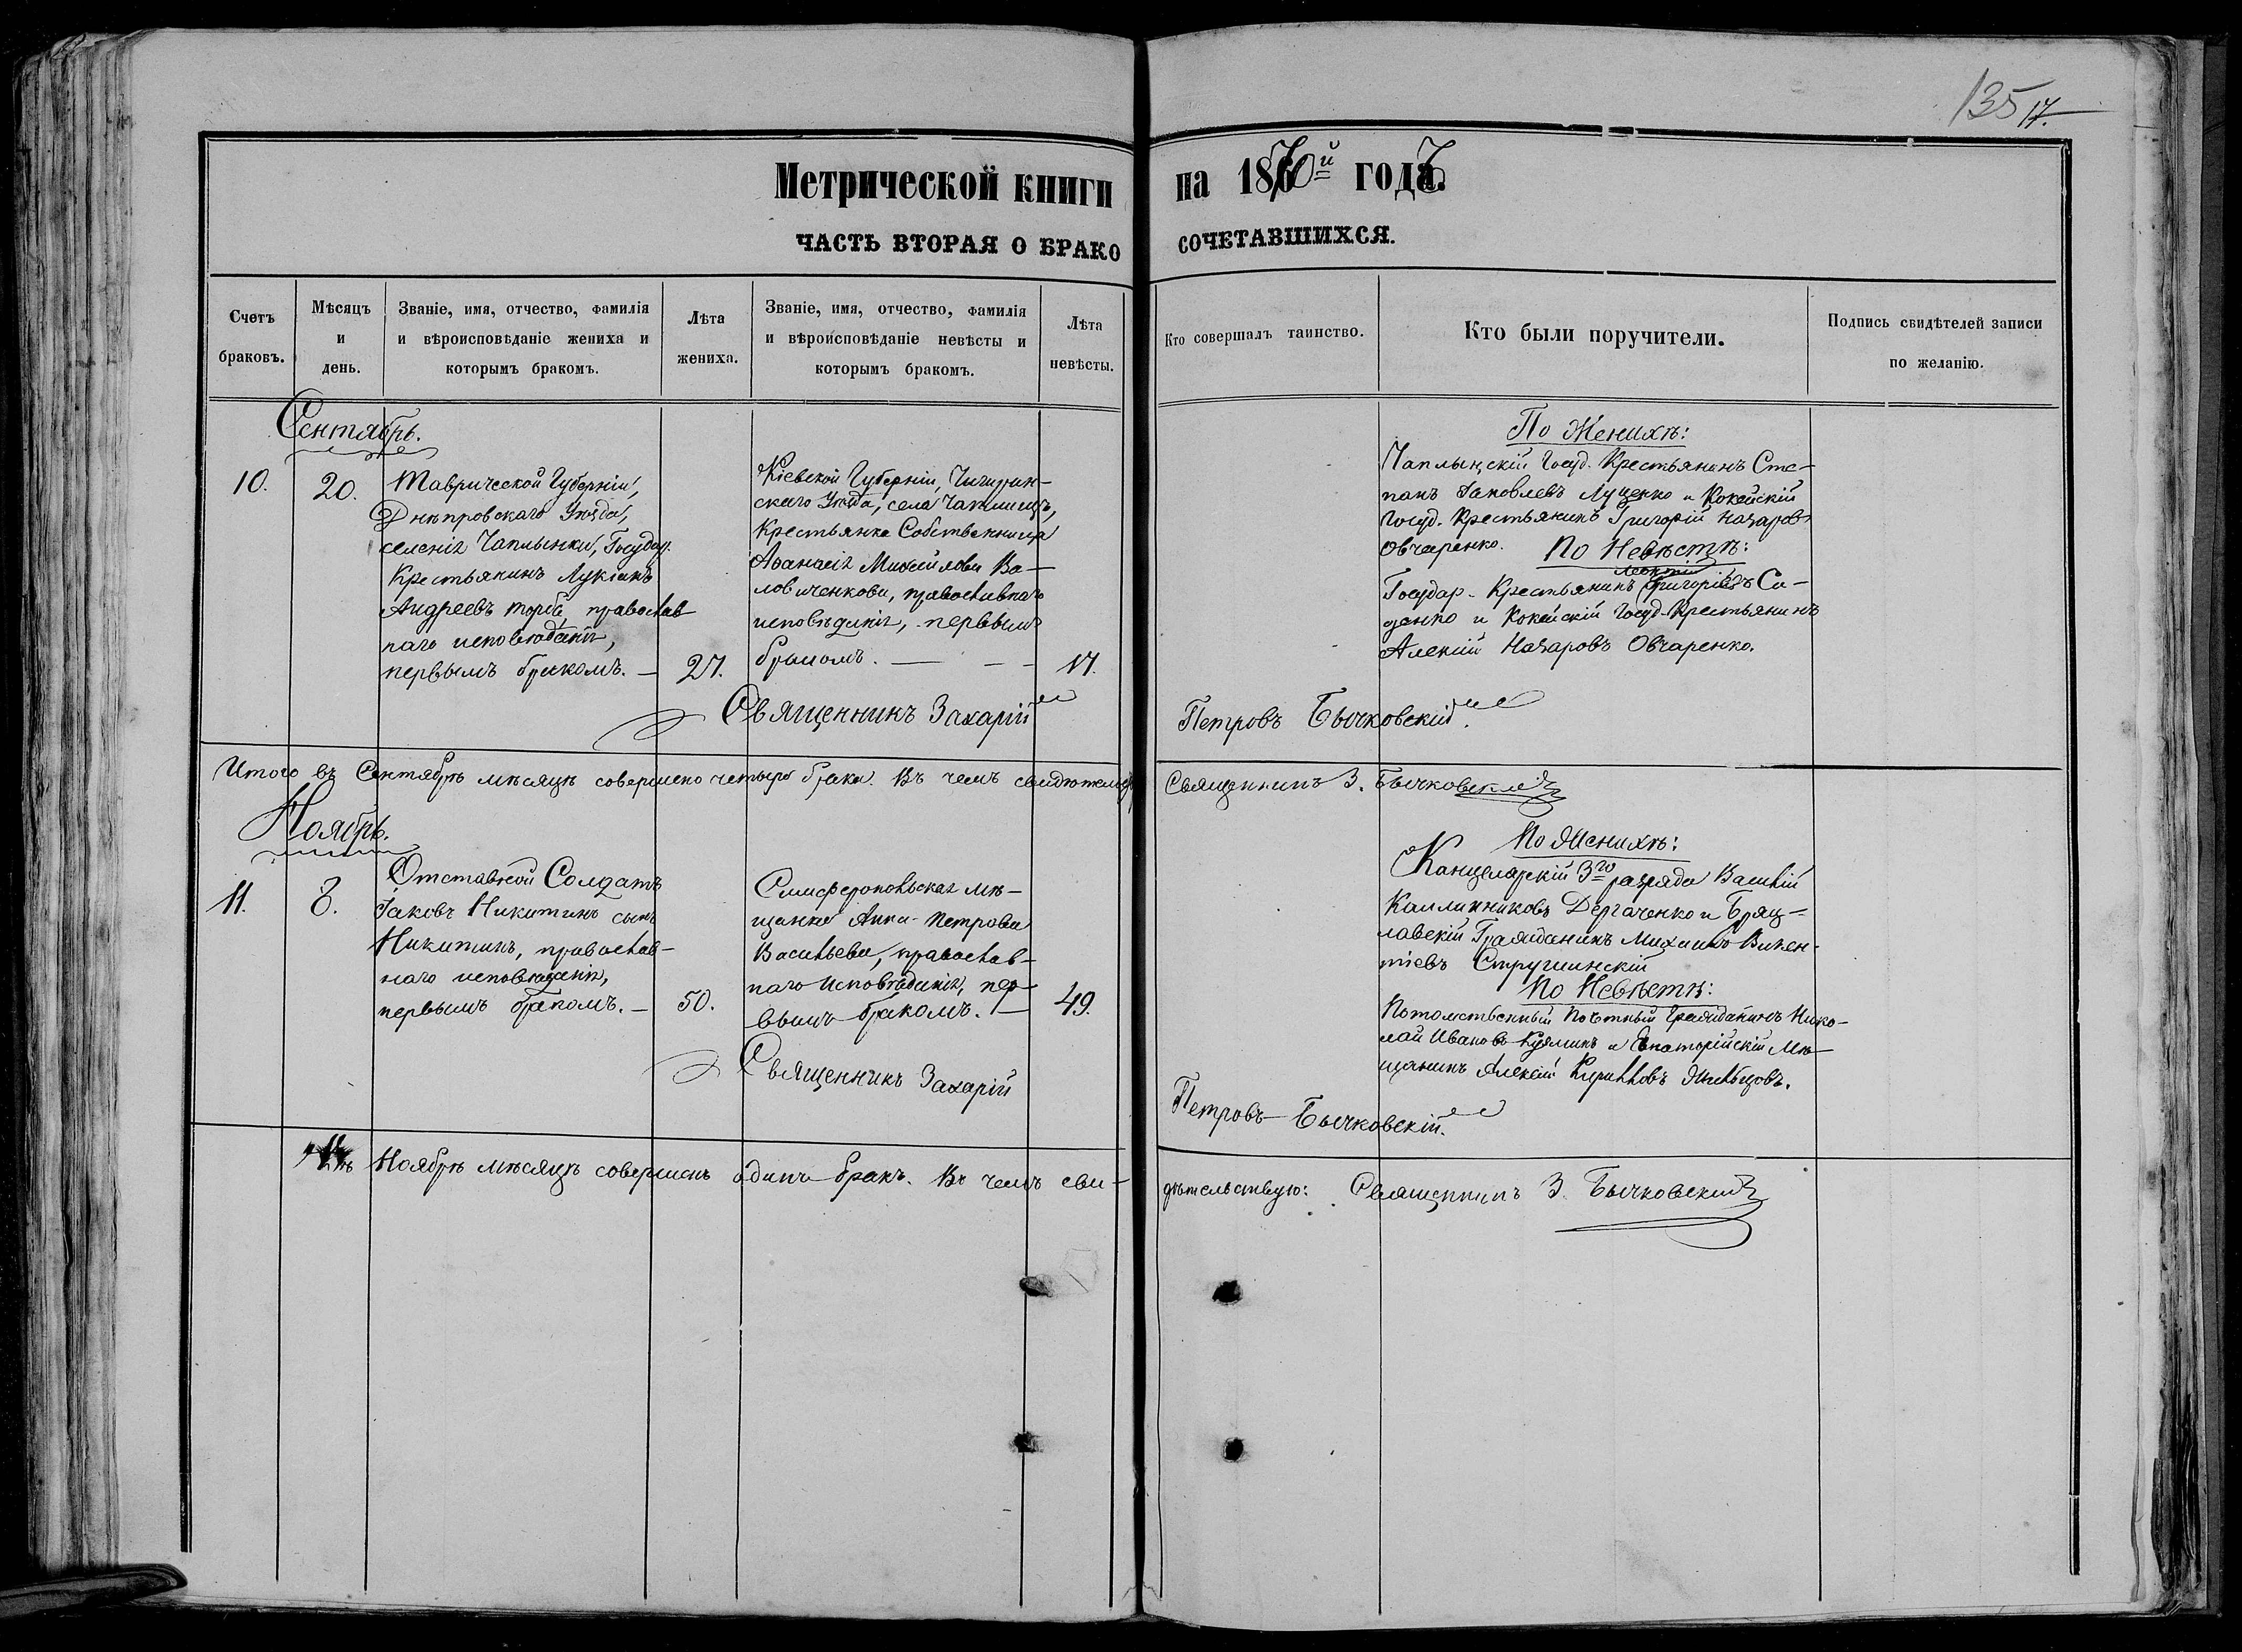 135 17.
Метрической книги на 1870й годъ.
ЧАСТЬ ВТОРАЯ О БРАКОСОЧЕТАВШИХСЯ.
Счетъ браковъ.
Мѣсяцъ и день.
Званіе, имя, отчество, фамилія и вѣроисповѣданіе жениха и которымъ бракомъ.
Лѣта жениха.
Званіе, имя, отчество, фамилія и вѣроисповѣданіе невѣсты и которымъ бракомъ.
Лѣта невѣсты.
Кто совершалъ таинство.
Кто были поручители.
Подпись свидѣтелей записи по желанію.
Сентябрь.
10.
20.
Таврической Губерніи,
Днѣпровскаго Уѣзда,
селенія Чаплынки, Государ.
Крестьянинъ Лукіанъ
Андреевъ Торба, православ
наго исповѣданія,
первымъ бракомъ. —
27.
Кіевской Губерніи, Чигирин-
скаго Уѣзда, села
Крестьянка Собственница
Аѳанасія Михайлова Ва-
ловиченкова, православнаго
исповѣданія, первымъ
бракомъ. —
17.
По Женихѣ:
Чаплынскій Госуд. Крестьянинъ Сте-
панъ Яковлевъ Луценко и
Госуд. Крестьянинъ Григорій Назаровъ
Овчаренко. По Невѣстѣ:
Леонтій
Государ. Крестьянинъ Григоріевъ Са-
ценко и Госуд. Крестьянинъ
Алексій Назаровъ Овчаренко.
Священникъ Захарій Петровъ Бычковскій.
Итого въ Сентябрѣ мѣсяцѣ совершено четыре брака. Въ чемъ свидѣтельствую Священникъ З. Бычковскій
Ноябрь.
11.
8.
Отставной Солдатъ
Іаковъ Никитинъ сынъ
Никитинъ, православ-
наго исповѣданія,
первымъ бракомъ. —
50.
Симферопольская мѣ-
щанка Анна Петрова
Васильева, православ-
наго исповѣданія, пер-
вымъ бракомъ. —
49.
По Женихѣ:
Канцелярскій 3го разряда Василій
Каллинниковъ Дергаченко и Брац-
лавскій Гражданинъ Михаилъ Викен-
тіевъ Стружинскій
По Невѣстѣ:
Потомственный Почетный Гражданинъ Нико-
лай Ивановъ и Евпаторійскій Мѣ-
щанинъ Алексій Кирилловъ
Священникъ Захарій Петровъ Бычковскій.
Въ Ноябрѣ мѣсяцѣ совершенъ одинъ бракъ. Въ чемъ сви-
дѣтельствую: Священникъ З. Бычковскій